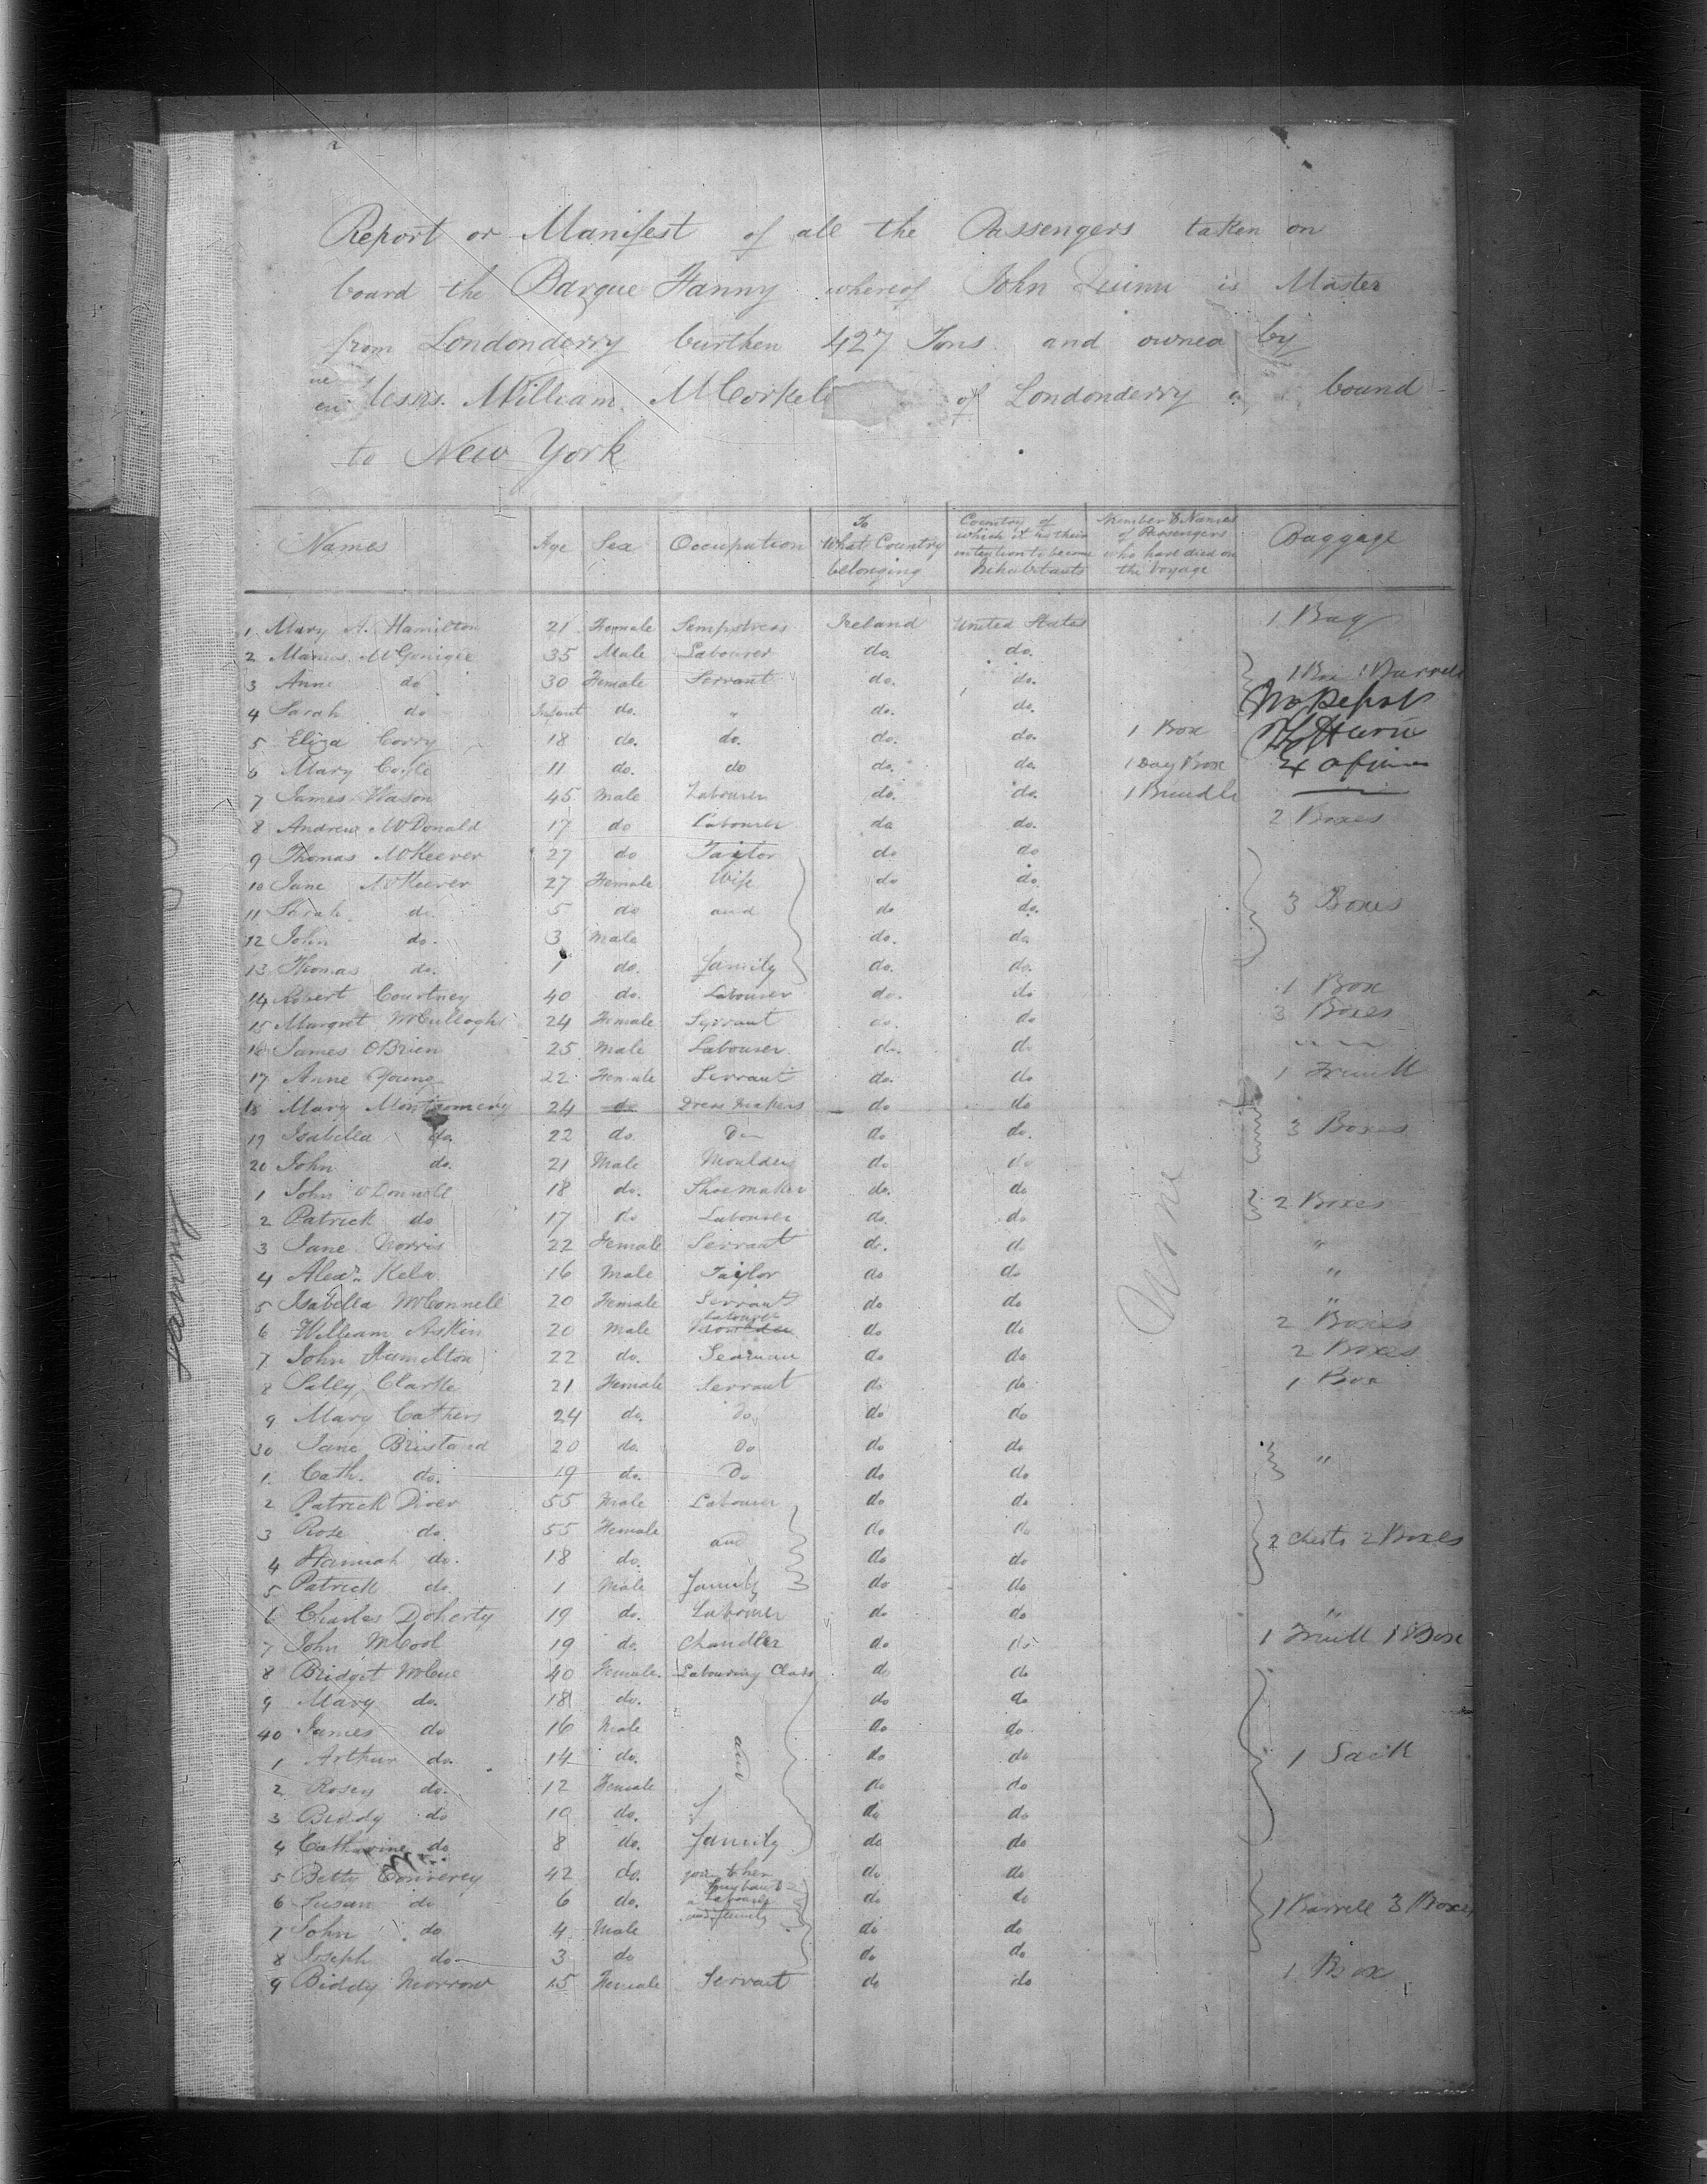 Report or Manifest of all the Passengers taken on
board the Barque Fanny whereof John Quinn is Master
from Londonderry burthen 427 Tons and owned by
Messrs. William McCorkell of Londonderry bound
to New York
Names Age Sex Occupation To What Country belonging Country of which it is their intention to become Inhabitants Number & Names of Passengers who have died on the voyage Baggage
1 Mary A. Hamilton 21 Female Sempstress Ireland United States 1 Bag
2 Manus McGonigle 35 Male Labourer do. do.
3 Anne do 30 Female Servant do. do. 1 Box 1 Barrel
4 Sarah do Infant do. " do. do.
5 Eliza Corry 18 do. do. do. do. 1 Box
6 Mary Coyle 11 do. do do. do. 1 Bag Box
7 James Wason 45 Male Labourer do. do. 1 Bundle
8 Andrew McDonald 17 do Labourer do do. 2 Boxes
9 Thomas McKeever 27 do Taylor do do
10 Jane McKeever 27 Female Wife do do.
11 Sarah do. 5 do and do do. 3 Boxes
12 John do. 3 Male do. do.
13 Thomas do. 1 do. family do. do.
14 Robert Courtney 40 do. Labourer do. do 1 Box
15 Margret McCullogh 24 Female Servant do. do 3 Boxes
16 James OBrien 25 Male Labourer do. do
17 Anne Young 22 Female Servant do. do 1 Trunk
18 Mary Montgomery 24 do Dress Makers do do
19 Isabella do. 22 do. Do do do. 3 Boxes
20 John do. 21 Male Moulder do do
1 John ODonnell 18 do. Shoemaker do. do
2 Patrick do 17 do Labourer do. do. 2 Boxes
3 Jane Norris 22 Female Servant do. do "
4 Alexr. Kela 16 Male Taylor do do "
5 Isabella McConnell 20 Female Servant do do "
6 William Askin 20 Male Labourer do do 2 Boxes
7 John Hamilton 22 do. Seaman do do 2 Boxes
8 Sally Clarke 21 Female Servant do do 1 Box
9 Mary Cathers 24 do. Do. do do
30 Jane 20 do. Do do do "
1 Cath. do. 19 do. Do do do
2 Patrick Diver 55 Male Labourer do do
3 Rose do. 55 Female and do do 2 Chests 2 Boxes
4 Hannah do. 18 do. do do
5 Patrick do. 1 Male family do do
6 Charles Doherty 19 do. Labourer do do "
7 John McCool 19 do. Chandler do do 1 Trunk 1 Box
8 Bridget McCue 40 Female. Labouring Class do do
9 Mary do. 18 do. do do
40 James do 16 Male and do do
1 Arthur do. 14 do. do do 1 Sack
2 Rosey do. 12 Female do do
3 Biddy do 10 do. do do
4 Catharine do 8 do. family do do
5 Betty Converey 42 do. going to her husband do do
6 Susan do 6 do. a Labourer and family do do 1 Barrell 3 Boxes
7 John do 4 Male do do
8 Joseph do 3 do do do
9 Biddy Morrow 15 Female Servant do do 1 Box
None
Fanny